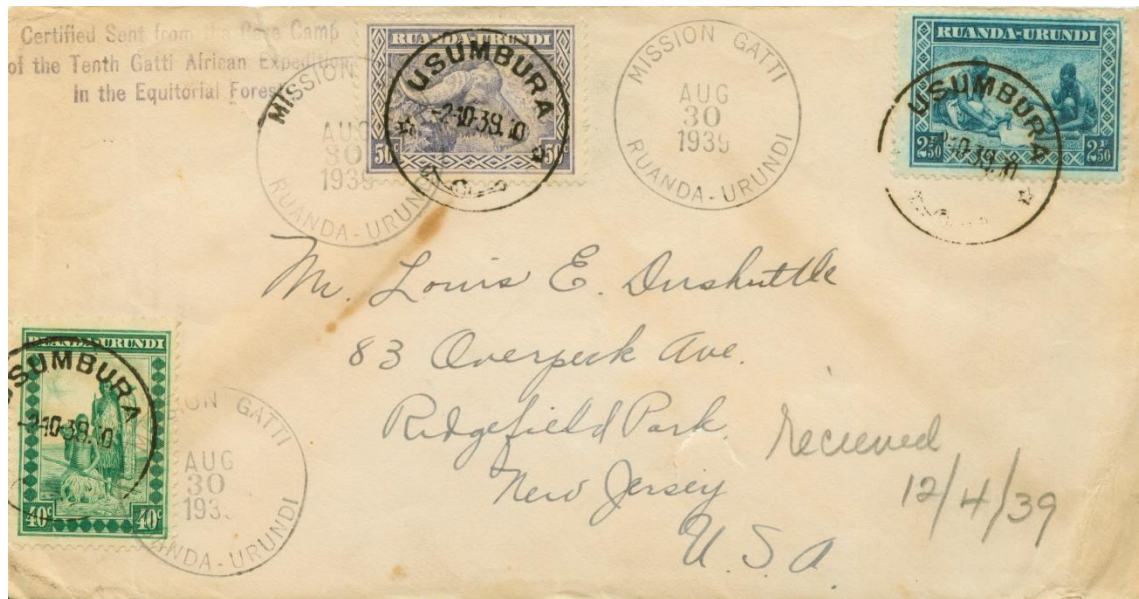 Certified Sent from the Base Camp
of the Tenth Gatti African Expedition
In the Equitorial Forest
MISSION
AUG
30
1939
RUANDA-URUNDI
RUANDA-URUNDI
50c 50c
USUMBURA
-2-10-39.10
MISSION GATTI
AUG
30
1939
RUANDA-URUNDI
RUANDA-URUNDI
2F50 2F50
USUMBURA
-2-10-39.10
Mr. Louis E. Durshuttle
83 Overpeck Ave.
Ridgefield Park
New Jersey
U.S.A.
Recieved
12/4/39
RUANDA-URUNDI
40c 40c
USUMBURA
-2-10-39.10
GATTI
AUG
30
193
RUANDA-URUNDI